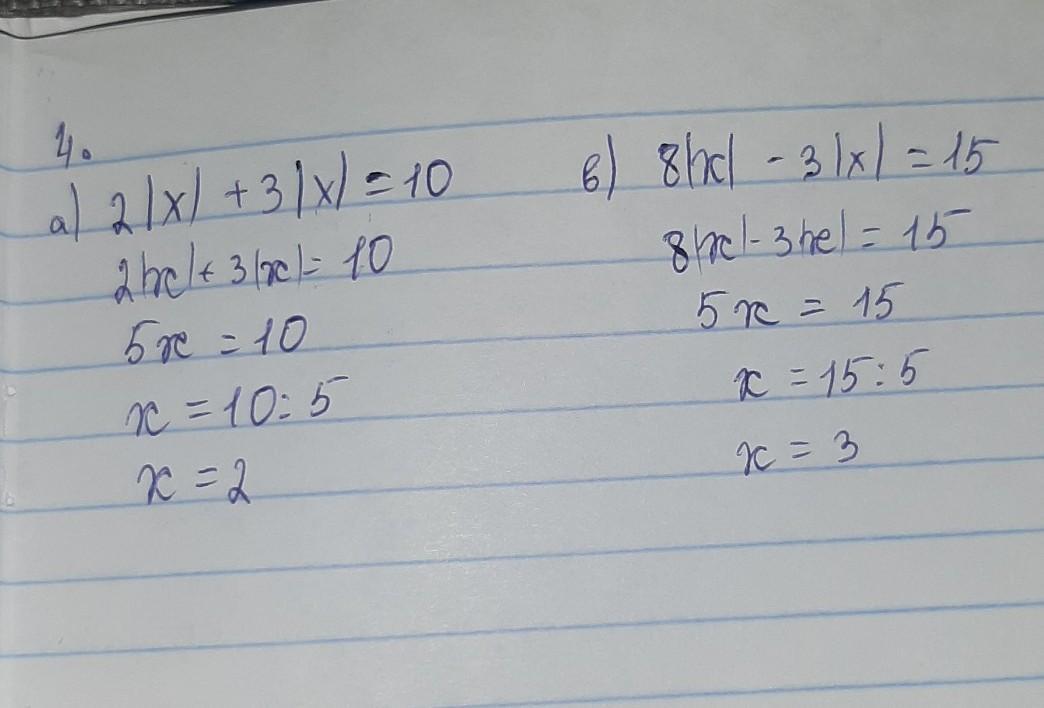 4.
а) 2|x| + 3|x| = 10
2|x| + 3|x| = 10
5x = 10
x = 10 : 5
x = 2
б) 8|x| - 3|x| = 15
8|x| - 3|x| = 15
5x = 15
x = 15 : 5
x = 3